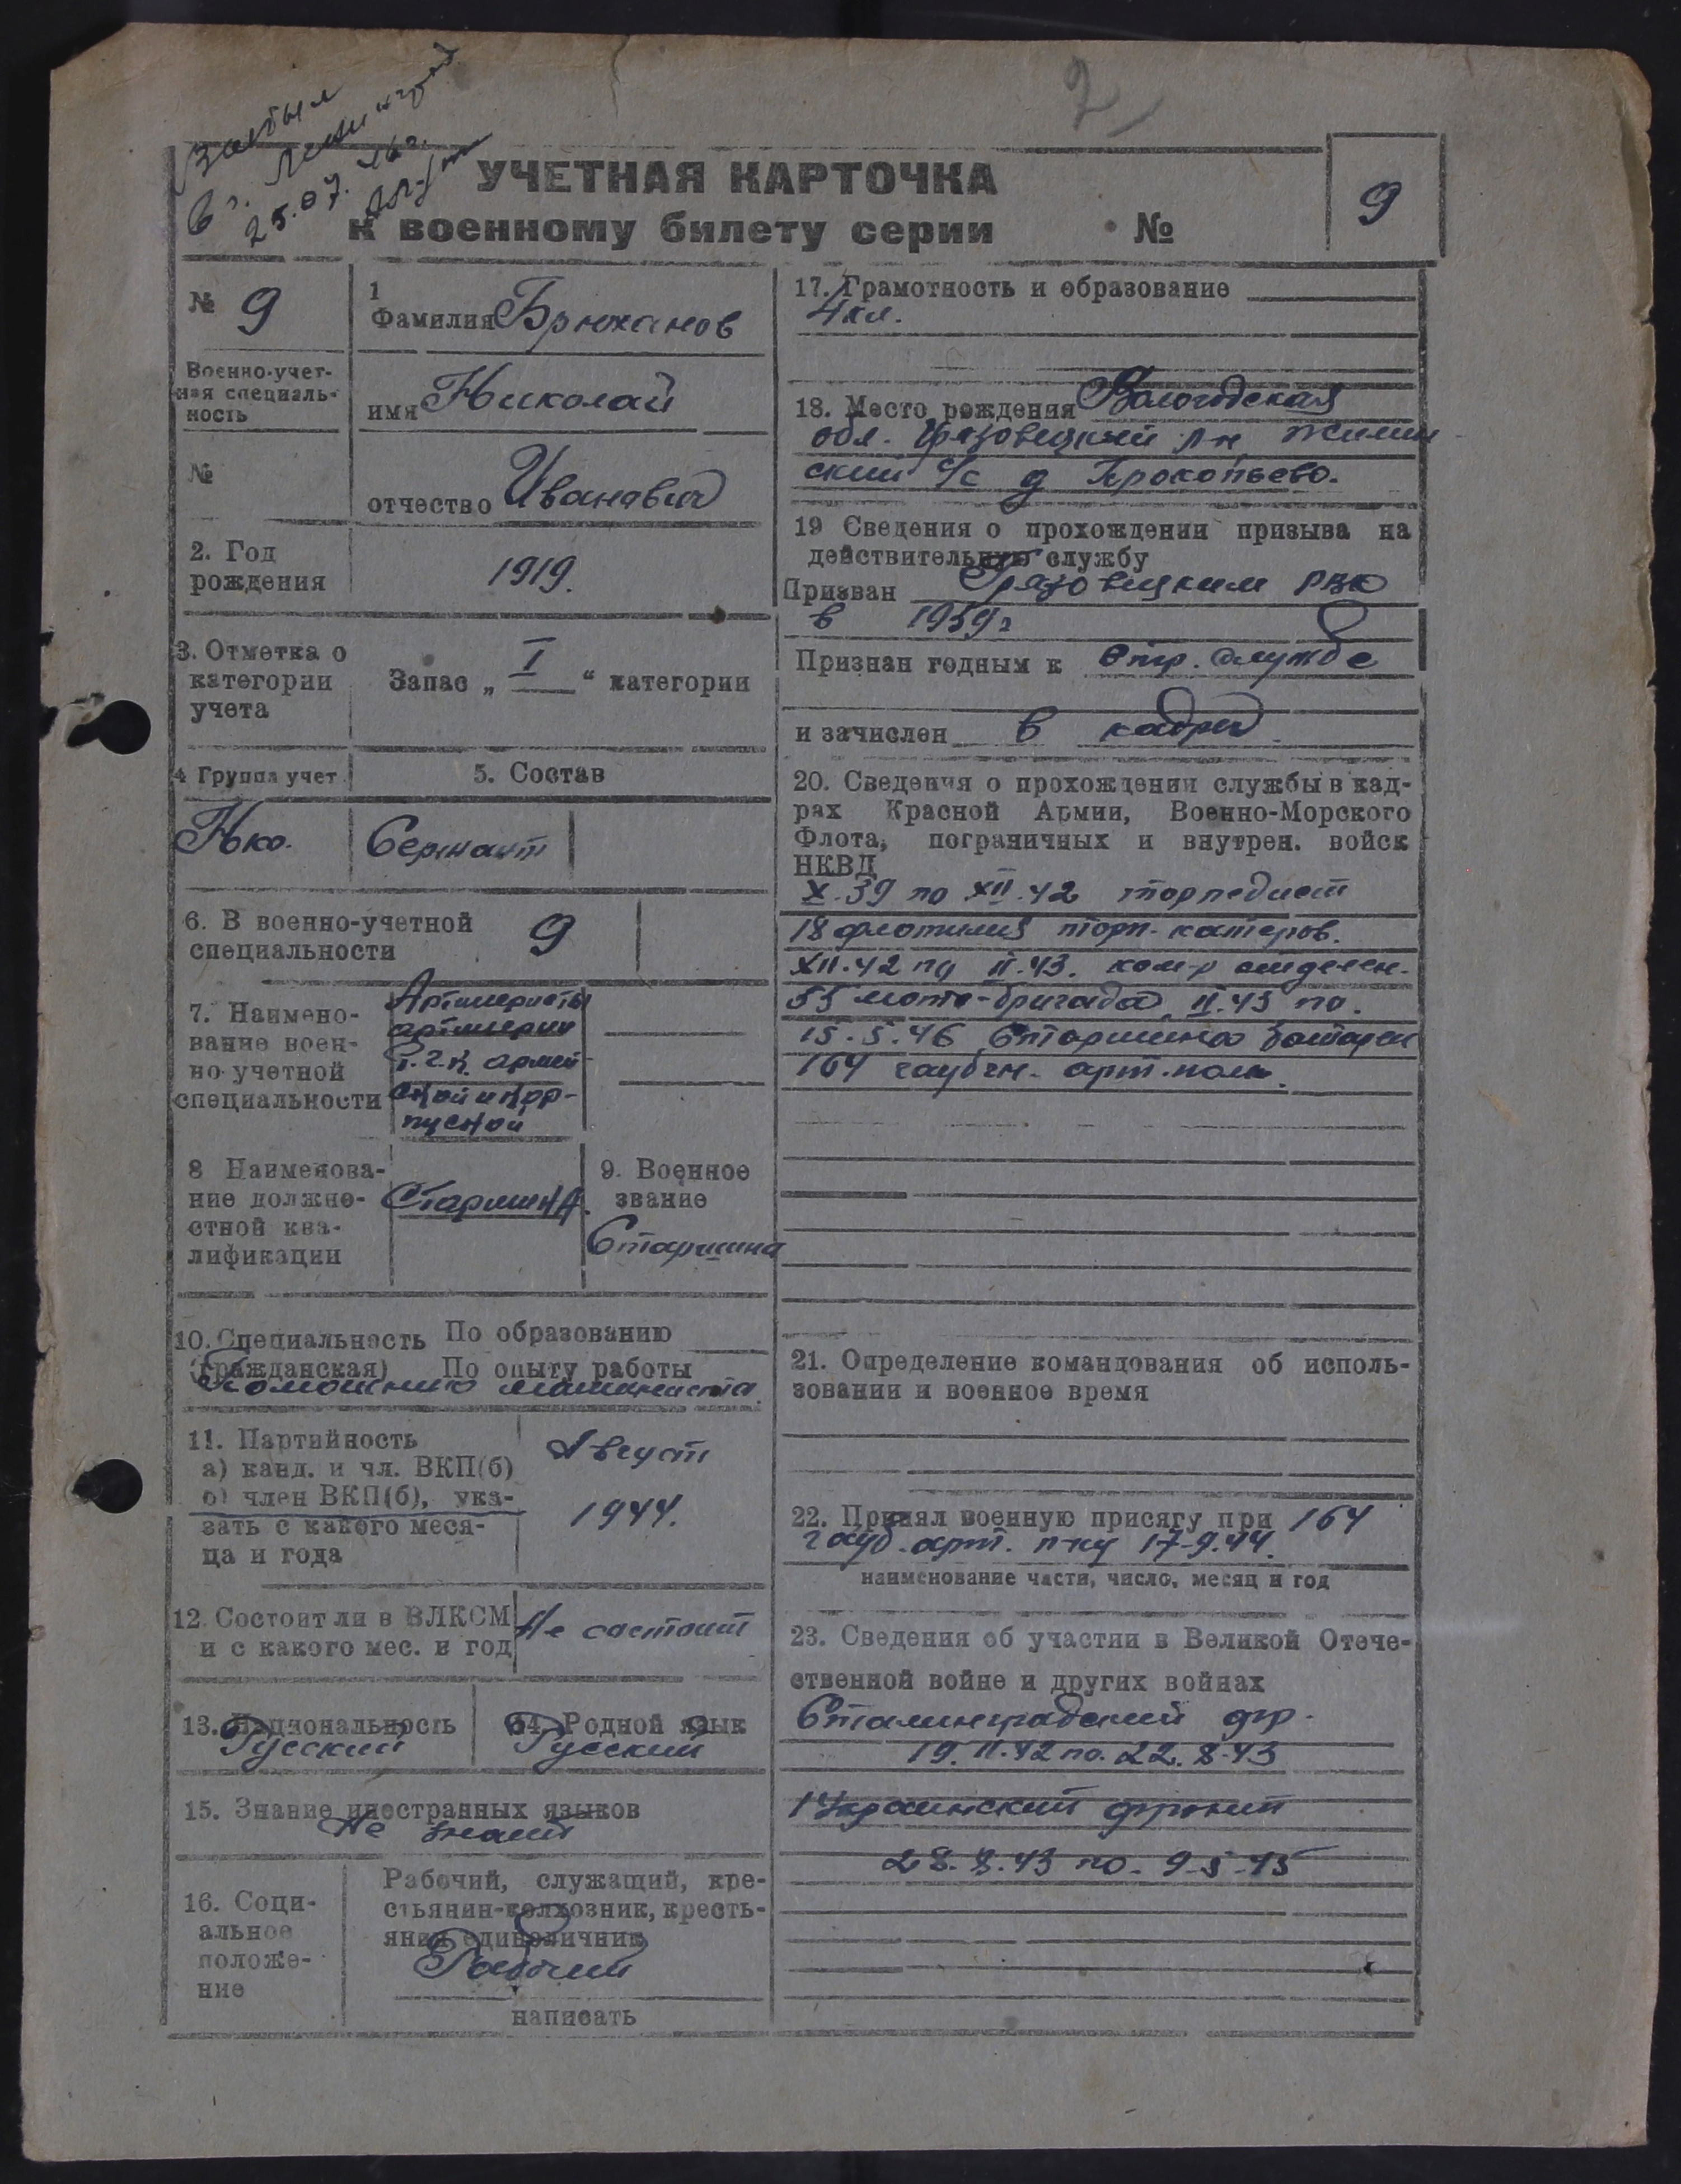 2
Выбыл
в г. Ленинград
25.07.46г.
УЧЕТНАЯ КАРТОЧКА
к военному билету серии №
9
№ 9
1
Фамилия Брюханов
Военно-учет-
ная специаль-
ность
имя Николай
№
отчество Иванович
2. Год
рождения
1919.
3. Отметка о
категории
учета
Запас „ I “ категории
4 Группа учет.
5. Состав
Сержант
6. В военно-учетной
специальности
9
7. Наимено-
вание воен-
но-учетной
специальности
Артиллеристы
артиллерии
Р.Г.К. армей-
ской и кор-
пусной
8 Наименова-
ние должно-
стной ква-
лификации
Старшина.
9. Военное
звание
Старшина
10. Специальность По образованию
(гражданская) По опыту работы
Помощника машиниста
11. Партийность
а) канд. и чл. ВКП(б)
б) член ВКП(б), ука-
зать с какого меся-
ца и года
Август
1944.
12. Состоит ли в ВЛКСМ
и с какого мес. и год
Не состоит
13. Национальность
Русский
14. Родной язык
Русский
15. Знание иностранных языков
Не знает
16. Соци-
альное
положе-
ние
Рабочий, служащий, кре-
стьянин-колхозник, кресть-
янин единоличник
Рабочий
написать
17. Грамотность и образование
4 кл.
18. Место рождения Вологодская
обл. Грязовецкий р-н Жилин
ский с/с д Прокопьево.
19 Сведения о прохождении призыва на
действительную службу
Призван Грязовецким РВК
в 1939г
Признан годным к стр. службе
и зачислен в кадры
20. Сведения о прохождении службы в кад-
рах Красной Армии, Военно-Морского
Флота, пограничных и внутрен. войск
НКВД
X.39 по XII.42 торпедист
18 флотилия торп. катеров.
XII.42 по II.43. ком-р отделен.
55 мото-бригада, II.43 по.
15.5.46 Старшина батареи
164 гаубичн. арт. полк.
21. Определение командования об исполь-
зовании и военное время
22. Принял военную присягу при 164
гауб. арт. п-ку 17-9.44.
наименование части, число, месяц и год
23. Сведения об участии в Великой Отече-
ственной войне и других войнах
Сталинградский фр.
19.11.42 по. 22.8.43
1 Украинский фронт
28.8.43 по. 9-5-45